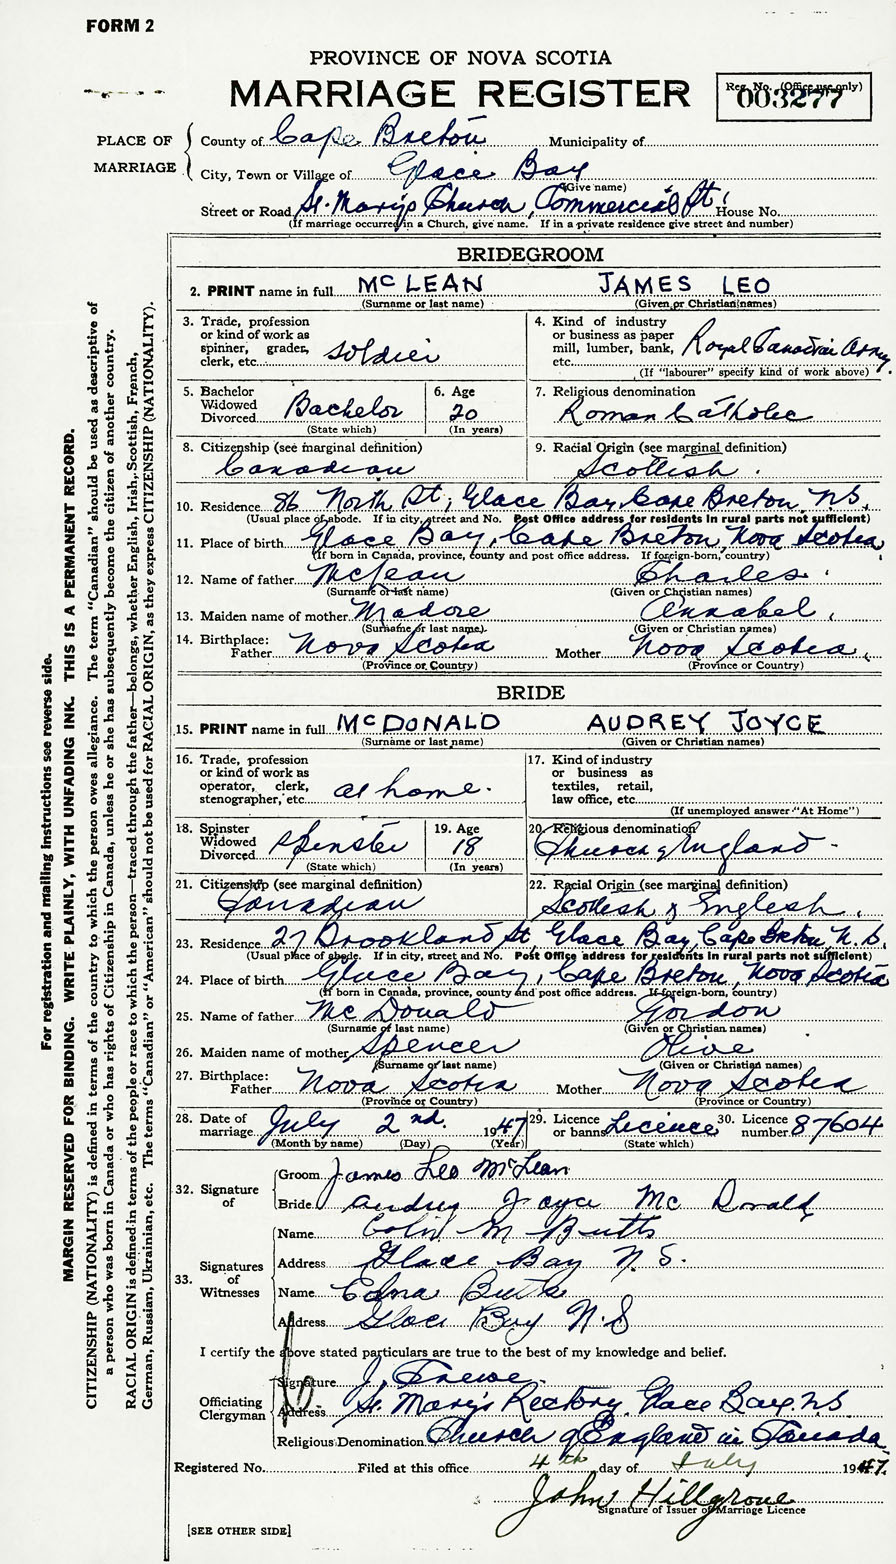 FORM 2
PROVINCE OF NOVA SCOTIA
MARRIAGE REGISTER
Reg. No. (Office use only)
003277
PLACE OF MARRIAGE
County of Cape Breton Municipality of
City, Town or Village of Glace Bay
(Give name)
Street or Road St. Mary's Church, Commercial St. House No.
(If marriage occurred in a Church, give name. If in a private residence give street and number)
BRIDEGROOM
2. PRINT name in full McLEAN JAMES LEO
(Surname or last name) (Given or Christian names)
3. Trade, profession or kind of work as spinner, grader, clerk, etc. Soldier
4. Kind of industry or business as paper mill, lumber, bank, etc. Royal Canadian Army.
(If "labourer" specify kind of work above)
5. Bachelor Widowed Divorced Bachelor
(State which)
6. Age 20
(In years)
7. Religious denomination
Roman Catholic
8. Citizenship (see marginal definition)
Canadian
9. Racial Origin (see marginal definition)
Scottish.
10. Residence 86 North St, Glace Bay, Cape Breton, N.S.
(Usual place of abode. If in city, street and No. Post Office address for residents in rural parts not sufficient)
11. Place of birth Glace Bay, Cape Breton, Nova Scotia
(If born in Canada, province, county and post office address. If foreign-born, country)
12. Name of father McLean Charles.
(Surname or last name) (Given or Christian names)
13. Maiden name of mother Madore Annabel,
(Surname or last name) (Given or Christian names)
14. Birthplace:
Father Nova Scotia Mother Nova Scotia,
(Province or Country) (Province or Country)
BRIDE
15. PRINT name in full McDONALD AUDREY JOYCE
(Surname or last name) (Given or Christian names)
16. Trade, profession or kind of work as operator, clerk, stenographer, etc. at home.
17. Kind of industry or business as textiles, retail, law office, etc.
(If unemployed answer "At Home")
18. Spinster Widowed Divorced Spinster
(State which)
19. Age 18
(In years)
20. Religious denomination
Church of England
21. Citizenship (see marginal definition)
Canadian
22. Racial Origin (see marginal definition)
Scottish & English.
23. Residence 27 Brookland St, Glace Bay, Cape Breton, N.S.
(Usual place of abode. If in city, street and No. Post Office address for residents in rural parts not sufficient)
24. Place of birth Glace Bay, Cape Breton, Nova Scotia
(If born in Canada, province, county and post office address. If foreign-born, country)
25. Name of father McDonald Gordon
(Surname of last name) (Given or Christian names)
26. Maiden name of mother Spencer Olive
(Surname or last name) (Given or Christian names)
27. Birthplace:
Father Nova Scotia Mother Nova Scotia
(Province or Country) (Province or Country)
28. Date of marriage July 2nd. 1947
(Month by name) (Day) (Year)
29. Licence or banns Licence
(State which)
30. Licence number 87604
32. Signature of
Groom James Leo McLean
Bride Audrey Joyce McDonald
33. Signatures of Witnesses
Name Colin M Butts
Address Glace Bay N.S.
Name Edna Butts
Address Glace Bay N.S
I certify the above stated particulars are true to the best of my knowledge and belief.
Officiating Clergyman
Signature J. Frewe.
Address St. Mary's Rectory, Glace Bay. N.S
Religious Denomination Church of England in Canada
Registered No. Filed at this office 4th day of July 1947.
John Hillgrove
Signature of Issuer of Marriage Licence
[SEE OTHER SIDE]
For registration and mailing instructions see reverse side.
MARGIN RESERVED FOR BINDING. WRITE PLAINLY, WITH UNFADING INK. THIS IS A PERMANENT RECORD.
CITIZENSHIP (NATIONALITY) is defined in terms of the country to which the person owes allegiance. The term "Canadian" should be used as descriptive of
a person who was born in Canada or who has rights of Citizenship in Canada, unless he or she has subsequently become the citizen of another country.
RACIAL ORIGIN is defined in terms of the people or race to which the person—traced through the father—belongs, whether English, Irish, Scottish, French,
German, Russian, Ukrainian, etc. The terms "Canadian" or "American" should not be used for RACIAL ORIGIN, as they express CITIZENSHIP (NATIONALITY).